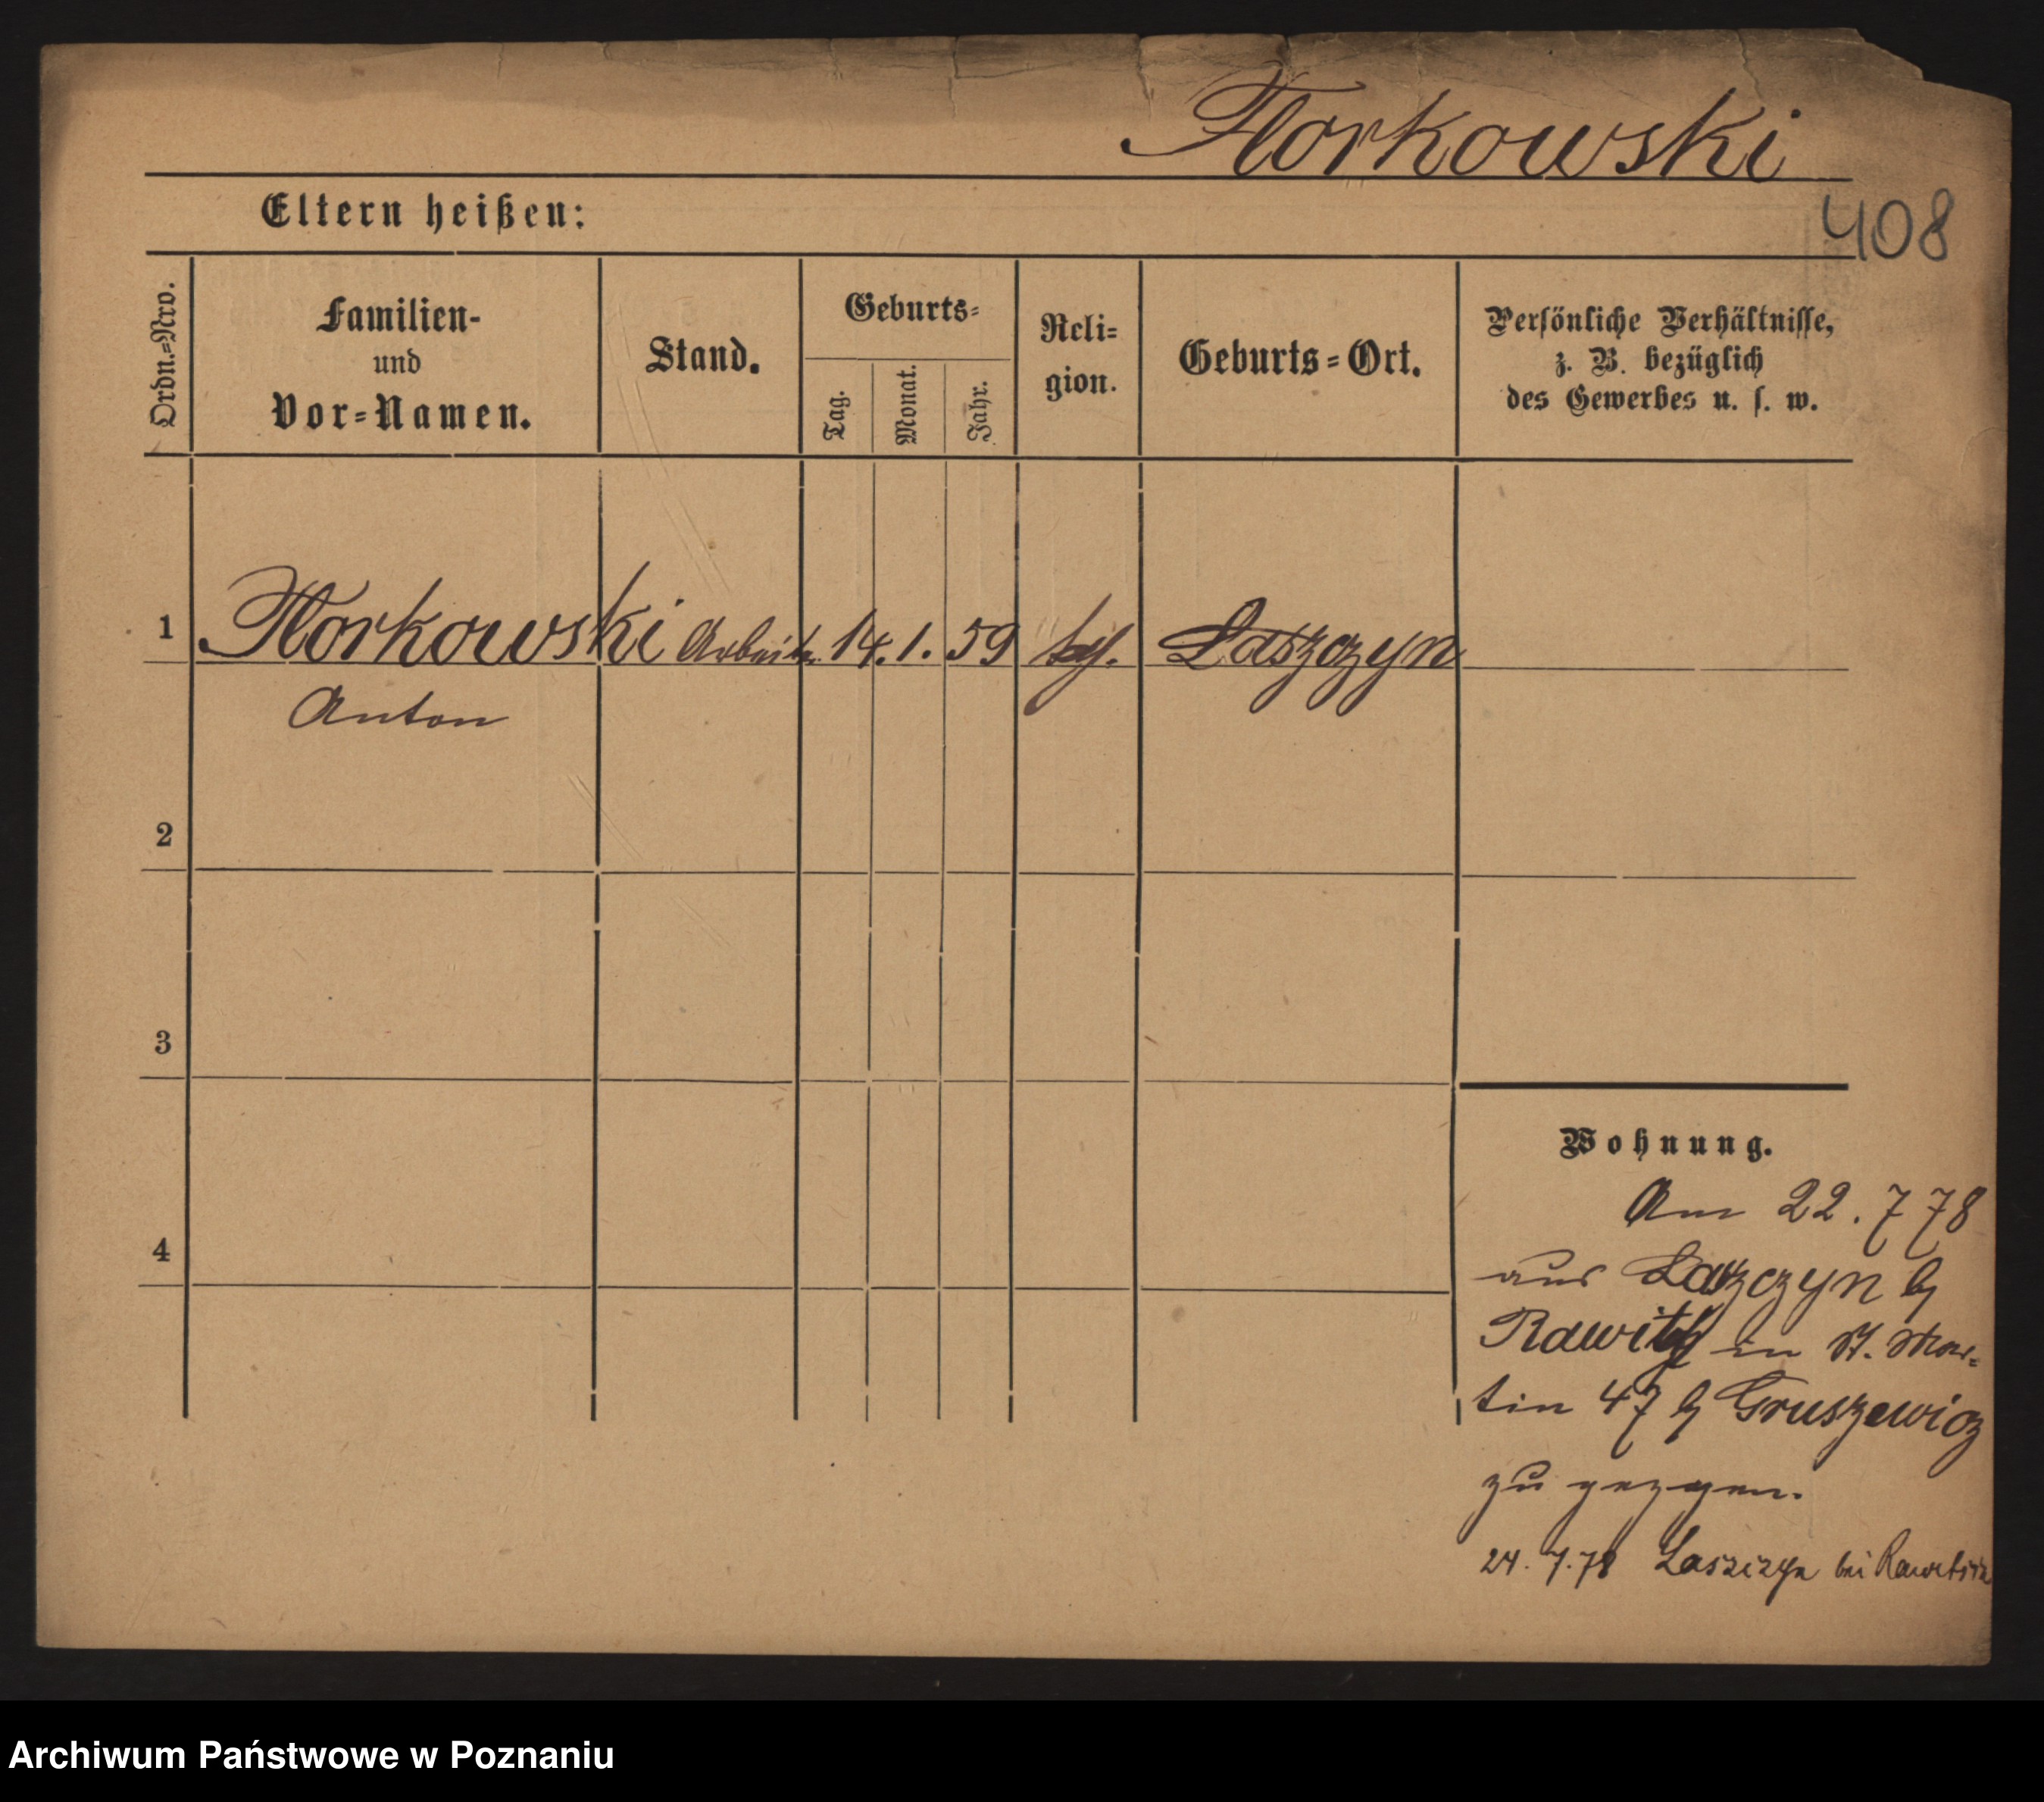 Florkowski
408
Eltern heißen:
Ordn.=Nro.
Familien-
und
Vor=Namen.
Stand.
Geburts=
Tag.
Monat.
Jahr.
Reli=
gion.
Geburts=Ort.
Persönliche Verhältnisse,
z. B. bezüglich
des Gewerbes u. s. w.
1 Florkowski Arbeiter 14. 1. 59 Laszczyn
Anton
2
3
4
Wohnung.
Am 22. 7 78
aus Laszczyn b
Rawitsch in St. Mar=
tin 47 b Gruszewicz
zu gezogen.
24. 7. 78 Laszczyn bei Rawitsch
Archiwum Państwowe w Poznaniu